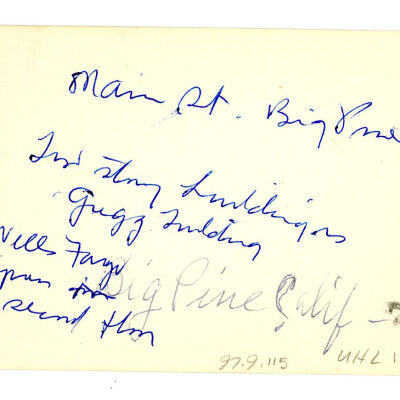 Main St. Big Pine
Two story building is
Gregg building
Wells Fargo
second floor
Big Pine Calif -
97.9.115
UHL 1